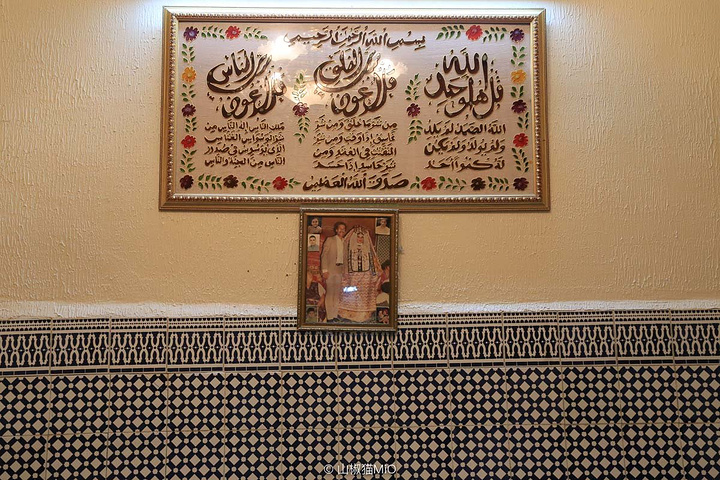 بسم الله الرحمن الرحيم
قل هو الله احد
الله الصمد لم يلد
ولم يولد ولم يكن
له كفوا احد
قل اعوذ برب الفلق
من شر ما خلق ومن شر
غاسق اذا وقب ومن شر
النفثت في العقد ومن
شر حاسد اذا حسد
قل اعوذ برب الناس
ملك الناس اله الناس من
شر الوسواس الخناس
الذي يوسوس في صدور
الناس من الجنة والناس
صدق الله العظيم
© 山椒猫MiO